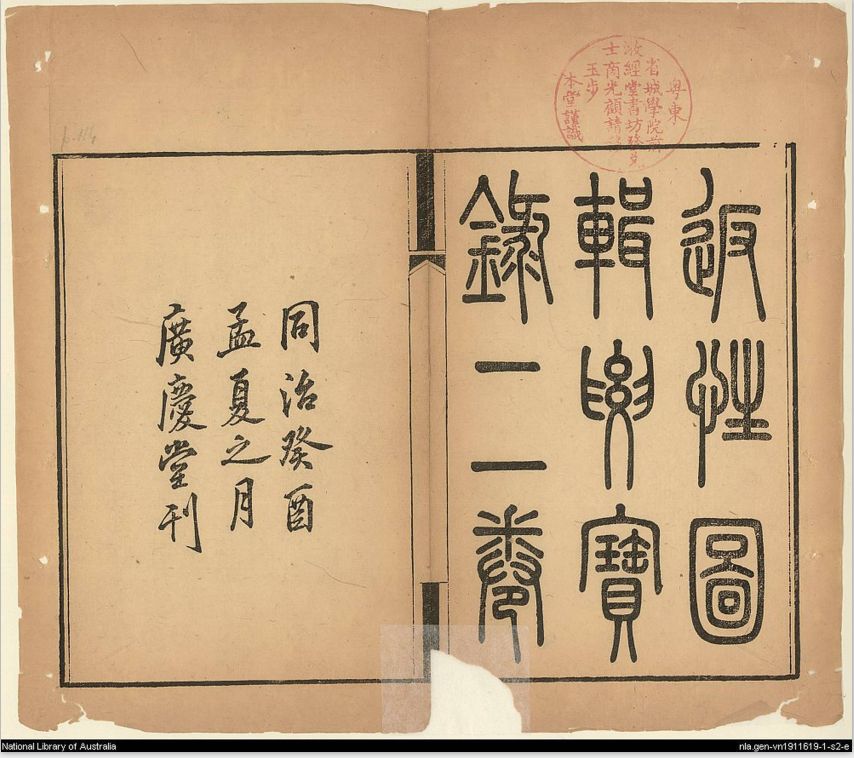 粵東
省城學院前
經堂書坊發兌
士商光顧請
玉步
本堂謹識
返性圖
輯要寶
錄二卷
同治癸酉
孟夏之月
廣慶堂刊
National Library of Australia
nla.gen-vn1911619-1-s2-e